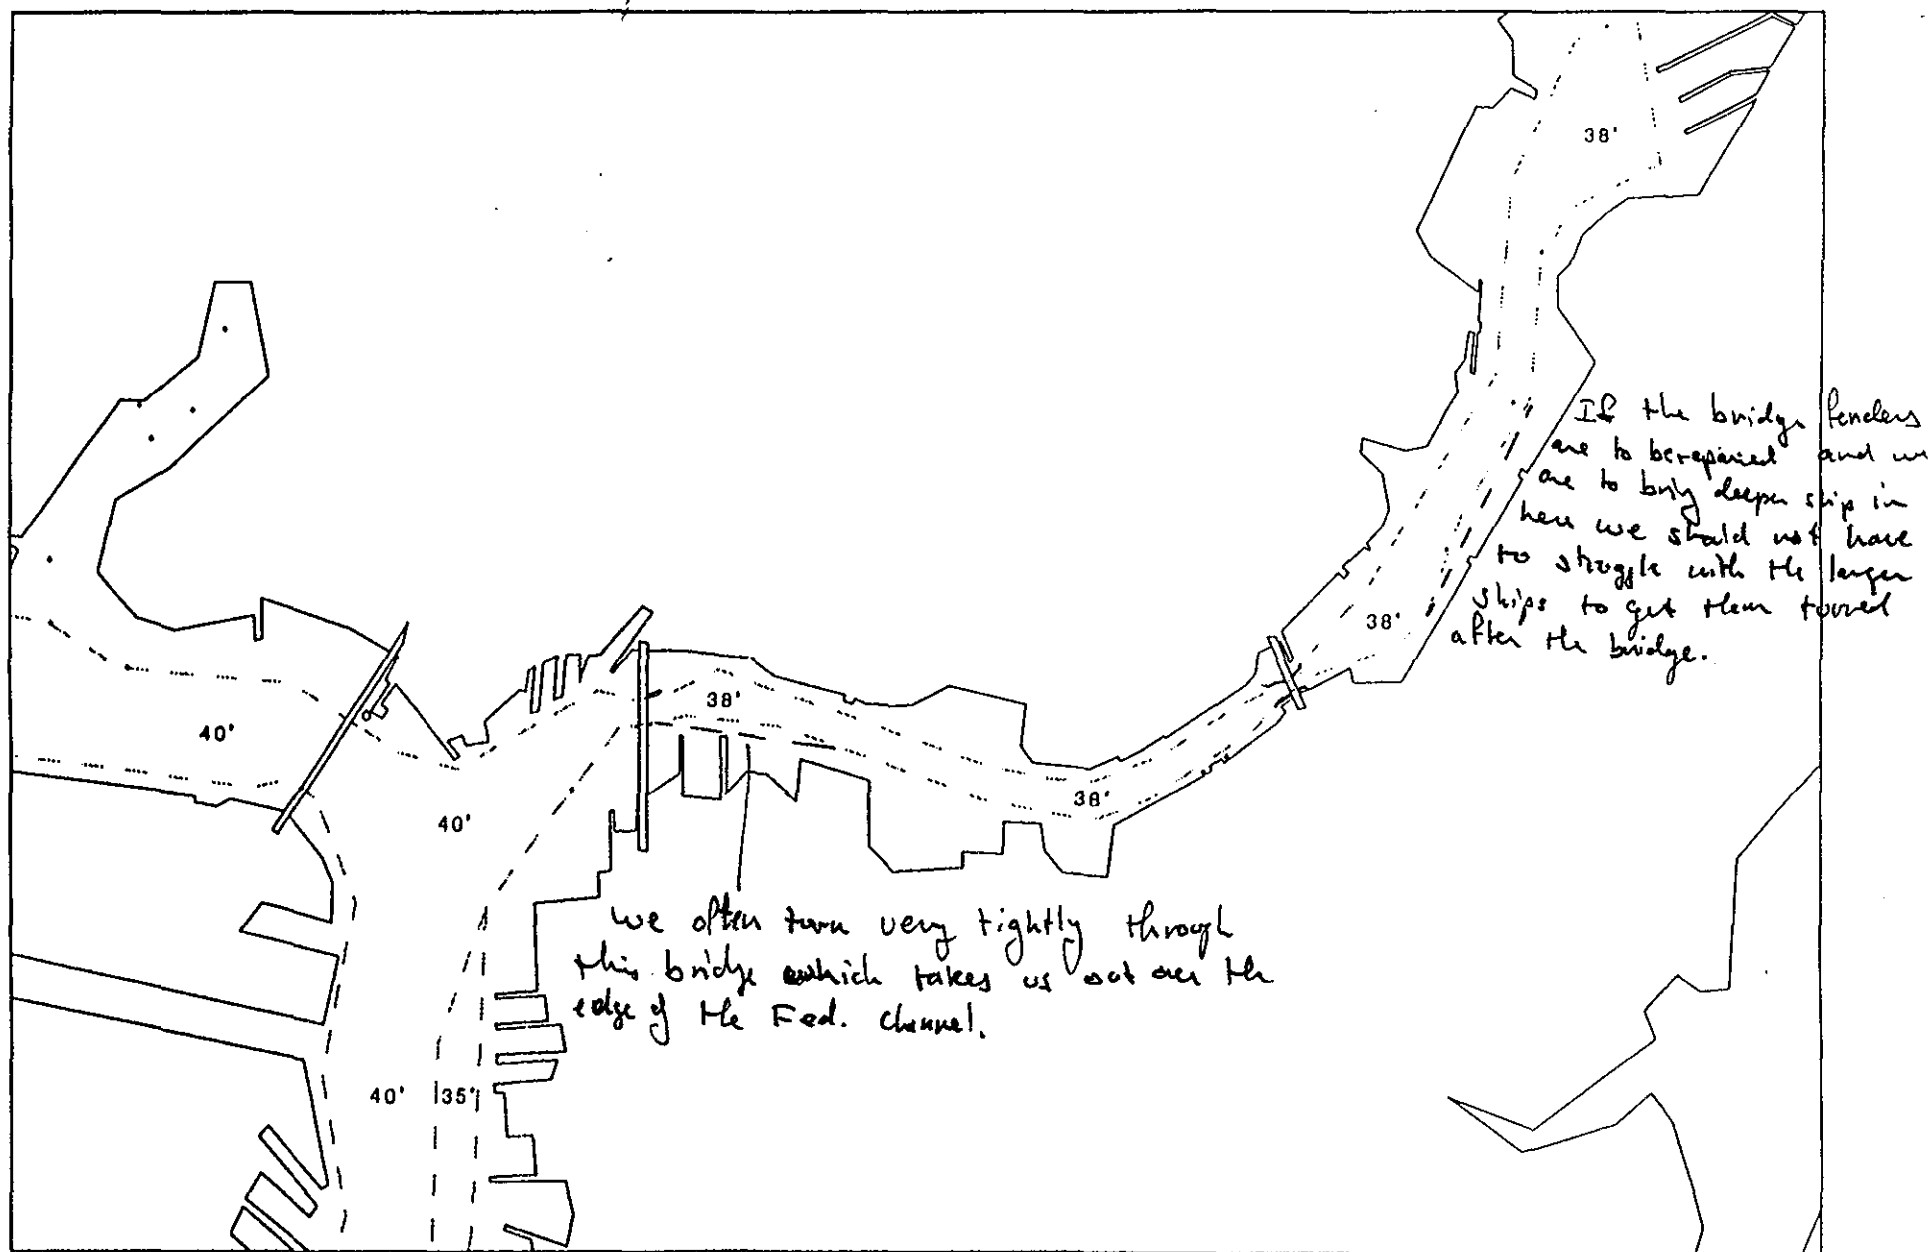 38'
If the bridge fenders
are to be repaired and we
are to bring deeper ship in
here we should not have
to struggle with the larger
ships to get them turned
after the bridge.
38'
38'
40'
38'
40'
we often turn very tightly through
this bridge which takes us out over the
edge of the Fed. channel.
40'
35'